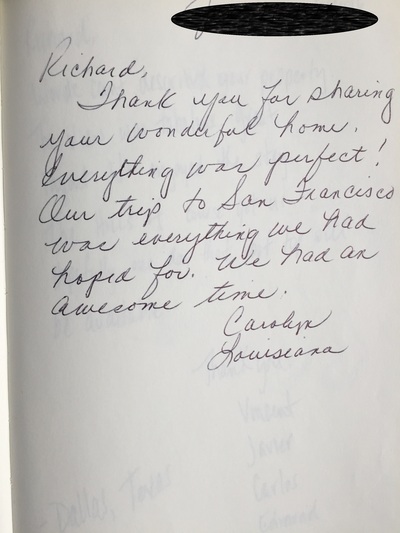 Richard,
Thank you for sharing
your wonderful home.
Everything was perfect!
Our trip to San Francisco
was everything we had
hoped for. We had an
awesome time.
Carolyn
Louisiana
Vincent
Javier
Carlos
Edmond
- Dallas, Texas